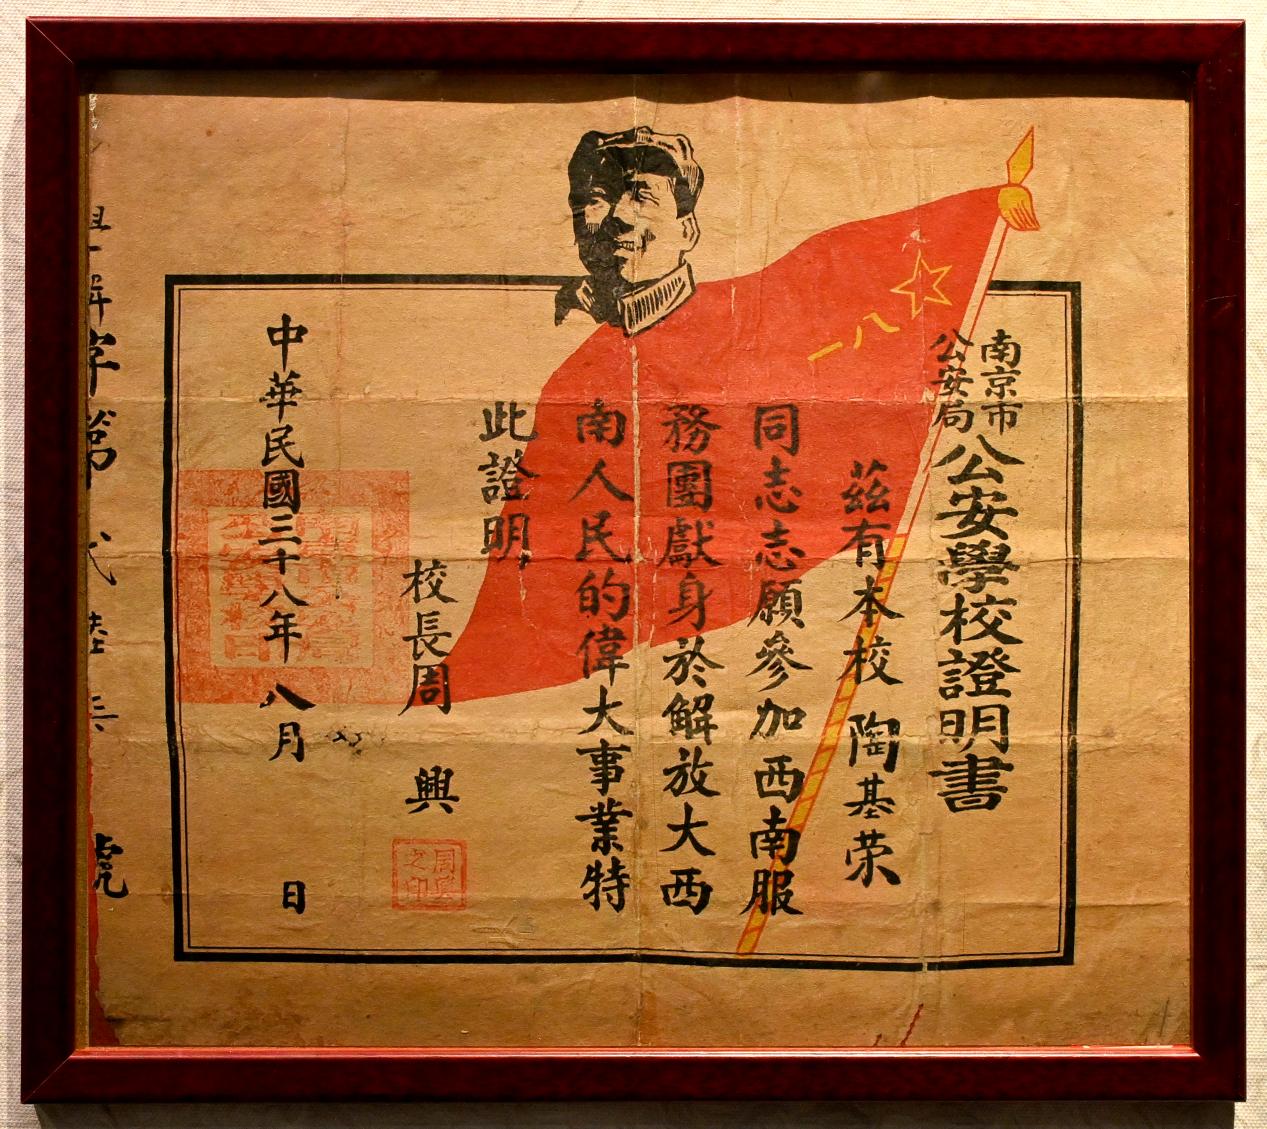 南京市
公安局
公安學校證明書
茲有本校 陶基荣
同志志願參加西南服
務團獻身於解放大西
南人民的偉大事業特
此證明
校長周 興
中華民國三十八年 八月 日
八一
字第
號